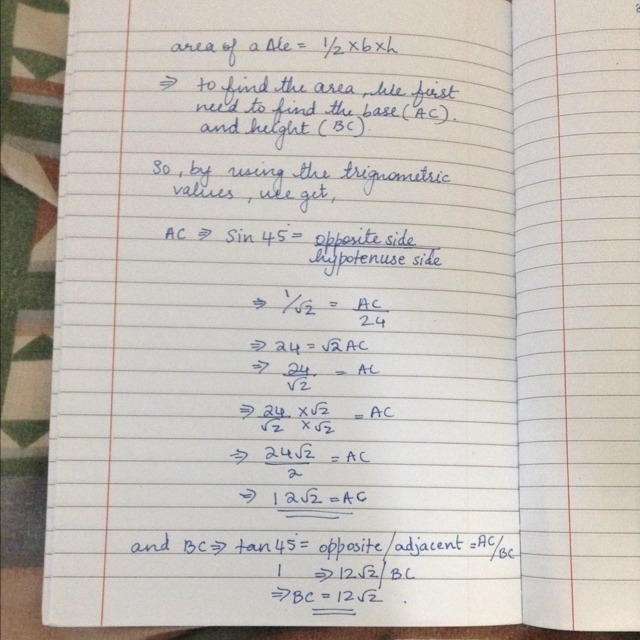 area of a Δle = 1/2 × b × h
⇒ to find the area, we first
need to find the base (AC).
and height (BC).
So, by using the trignometric
values, we get,
AC ⇒ Sin 45° = opposite side / hypotenuse side
⇒ 1/√2 = AC / 24
⇒ 24 = √2 AC
⇒ 24/√2 = AC
⇒ 24/√2 ×√2/×√2 = AC
⇒ 24√2/2 = AC
⇒ 12√2 = AC
and BC ⇒ tan 45° = opposite/adjacent = AC/BC
1 ⇒ 12√2/BC
⇒ BC = 12√2 .